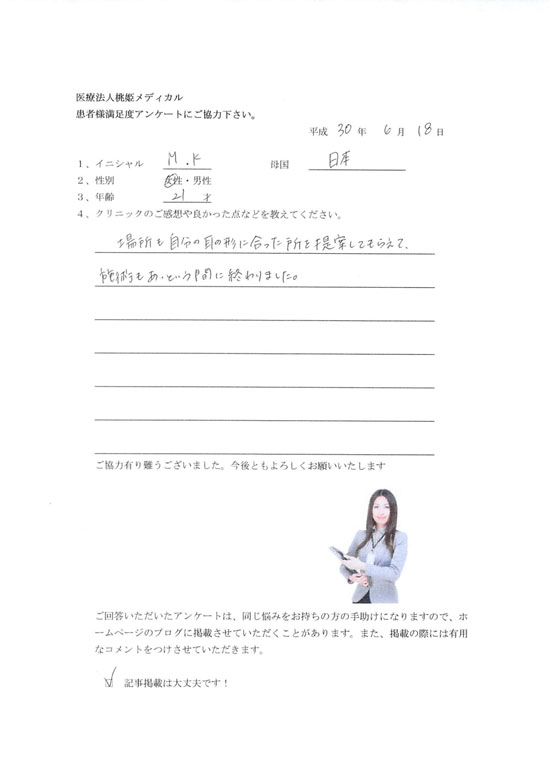 医療法人桃姫メディカル
患者様満足度アンケートにご協力下さい。
平成 30 年 6 月 18 日
1、イニシャル M.K 母国 日本
2、性別 女性・男性
3、年齢 21 才
4、クリニックのご感想や良かった点などを教えてください。
場所も自分の目の形に合った所を提案してもらえて、
施術もあっという間に終わりました。
ご協力有り難うございました。今後ともよろしくお願いいたします
ご回答いただいたアンケートは、同じ悩みをお持ちの方の手助けになりますので、ホ
ームページのブログに掲載させていただくことがあります。また、掲載の際には有用
なコメントをつけさせていただきます。
記事掲載は大丈夫です！